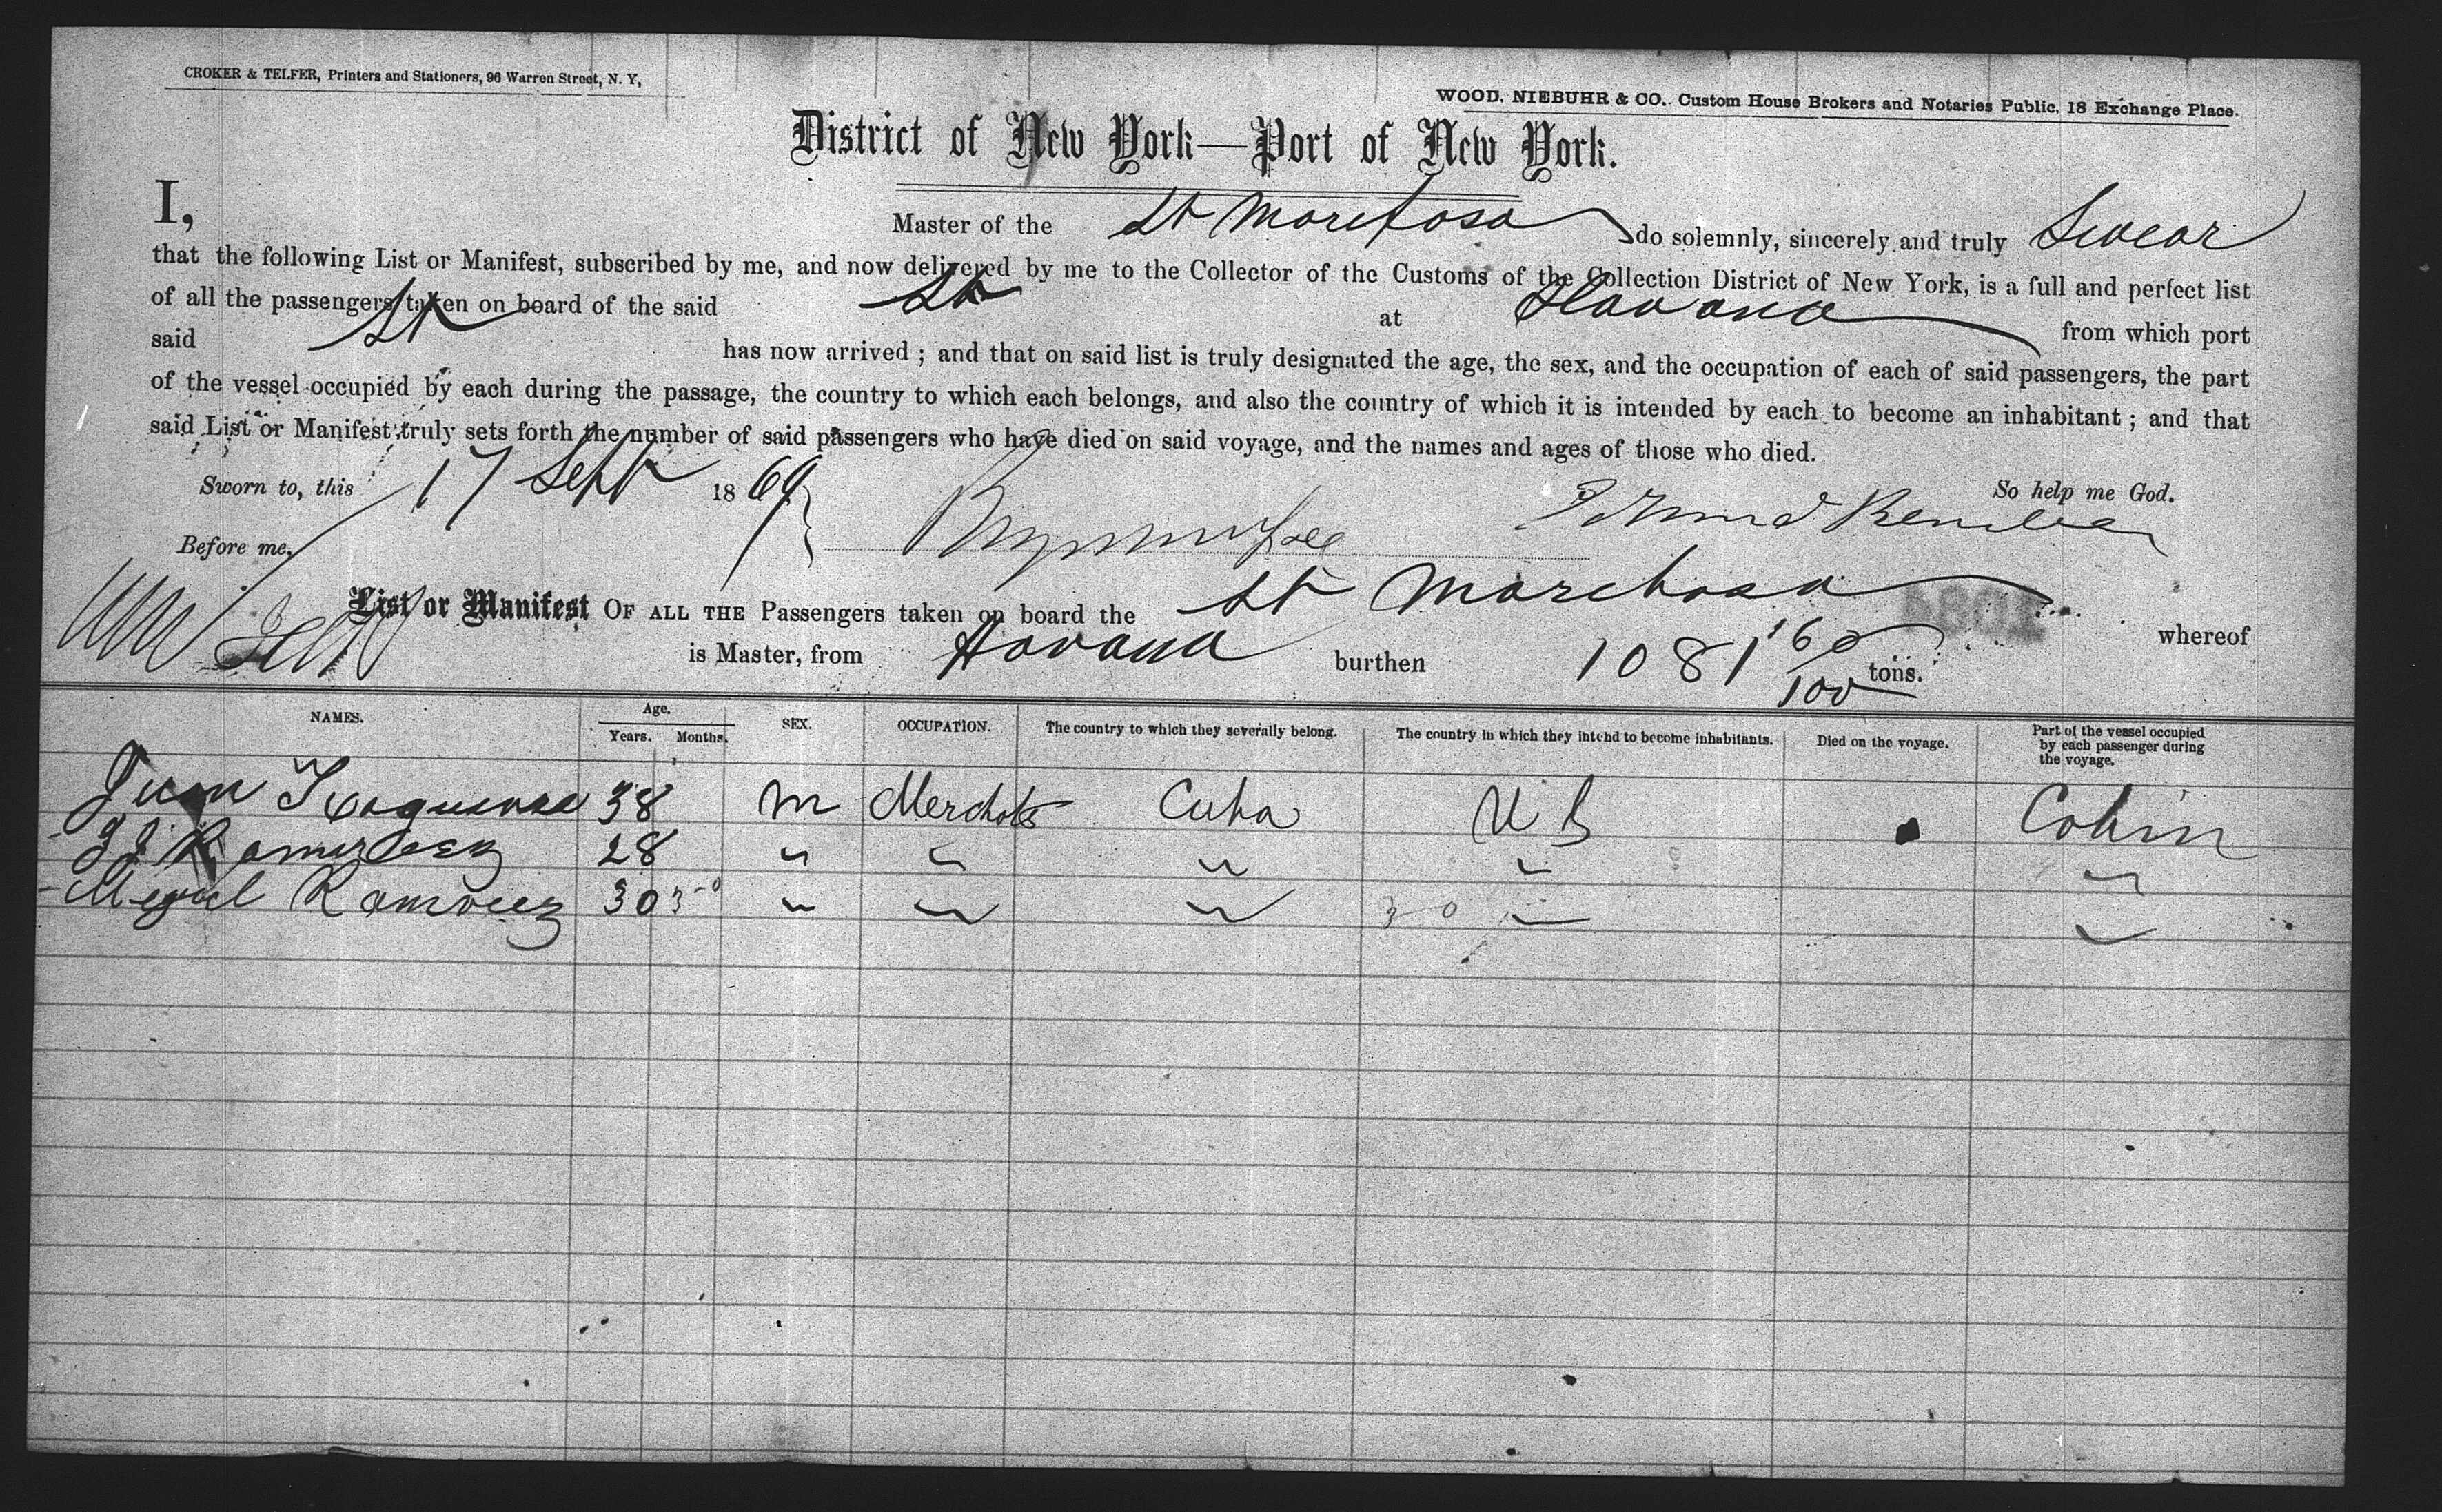 CROKER & TELFER, Printers and Stationers, 96 Warren Street, N. Y,
WOOD, NIEBUHR & CO.. Custom House Brokers and Notaries Public, 18 Exchange Place.
District of New York—Port of New York.
I, Master of the St do solemnly, sincerely and truly Swear
that the following List or Manifest, subscribed by me, and now delivered by me to the Collector of the Customs of the Collection District of New York, is a full and perfect list
of all the passengers taken on board of the said St at Havana from which port
said St has now arrived ; and that on said list is truly designated the age, the sex, and the occupation of each of said passengers, the part
of the vessel occupied by each during the passage, the country to which each belongs, and also the country of which it is intended by each to become an inhabitant ; and that
said List or Manifest truly sets forth the number of said passengers who have died on said voyage, and the names and ages of those who died.
Sworn to, this 17 Sept 1869 So help me God.
Before me,
List or Manifest OF ALL THE Passengers taken on board the St whereof
is Master, from Havana burthen 1081 60/100 tons.
NAMES. Age. Years. Months. SEX. OCCUPATION. The country to which they severally belong. The country in which they intend to become inhabitants. Died on the voyage. Part of the vessel occupied by each passenger during the voyage.
Juan 38 m Cuba U S Cabin
J J 28 " " " " "
Ramirez 30 30 " " " 30 " "